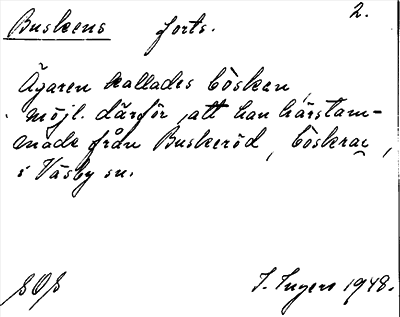 Buskens forts. 2.
Ägaren kallades bösken,
möjl. därför, att han härstam-
made från Buskeröd, böskrar,
i Väsby sn.
SOS I. Ingers 1948.